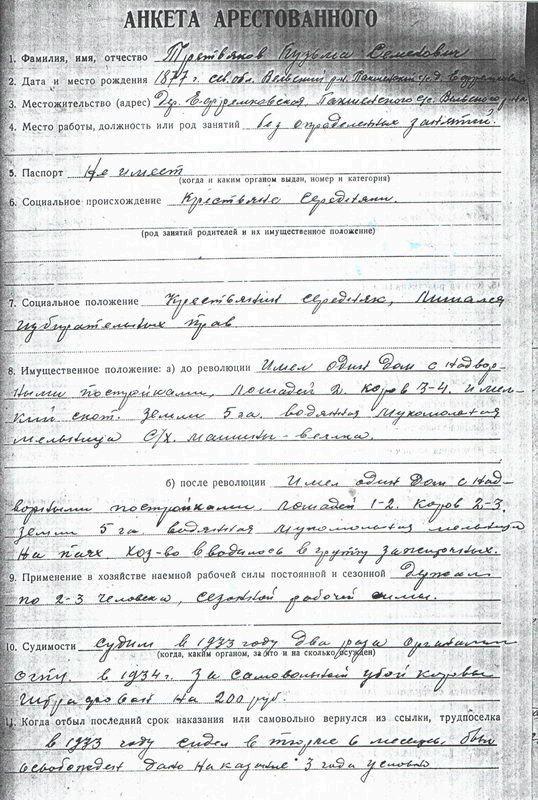 АНКЕТА АРЕСТОВАННОГО
1. Фамилия, имя, отчество Третьяков Кузьма Семенович
2. Дата и место рождения 1877 г. Сев. обл. Вельский р-н
3. Местожительство (адрес) Дер. Ефремковская Вельского р-на
4. Место работы, должность или род занятий без определенных занятий.
5. Паспорт Не имеет
(когда и каким органом выдан, номер и категория)
6. Социальное происхождение Крестьяне середняки.
(род занятий родителей и их имущественное положение)
7. Социальное положение Крестьянин середняк, лишался
избирательных прав
8. Имущественное положение: а) до революции Имел один дом с надвор-
ными постройками, лошадей 2. коров 3-4. и мел-
кий скот. земли 5 га. водяная мукомольная
мельница с/х. машины - веялка.
б) после революции Имел один дом с над-
ворными постройками. лошадей 1-2. коров 2-3.
земли 5 га водяная мукомольная мельница
на паях хоз-во вводилось в группу зажиточных.
9. Применение в хозяйстве наемной рабочей силы постоянной и сезонной Держал
по 2-3 человека, сезонной рабочей силы.
10. Судимости судим в 1933 году два раза органами
(когда, каким органом, за что и на сколько осужден)
ОГПУ. в 1934 г. за самовольный убой коровы
штрафован на 200 руб.
11. Когда отбыл последний срок наказания или самовольно вернулся из ссылки, трудпоселка
в 1933 году сидел в тюрьме 6 месяцев был
освобожден дано наказание 3 года условно